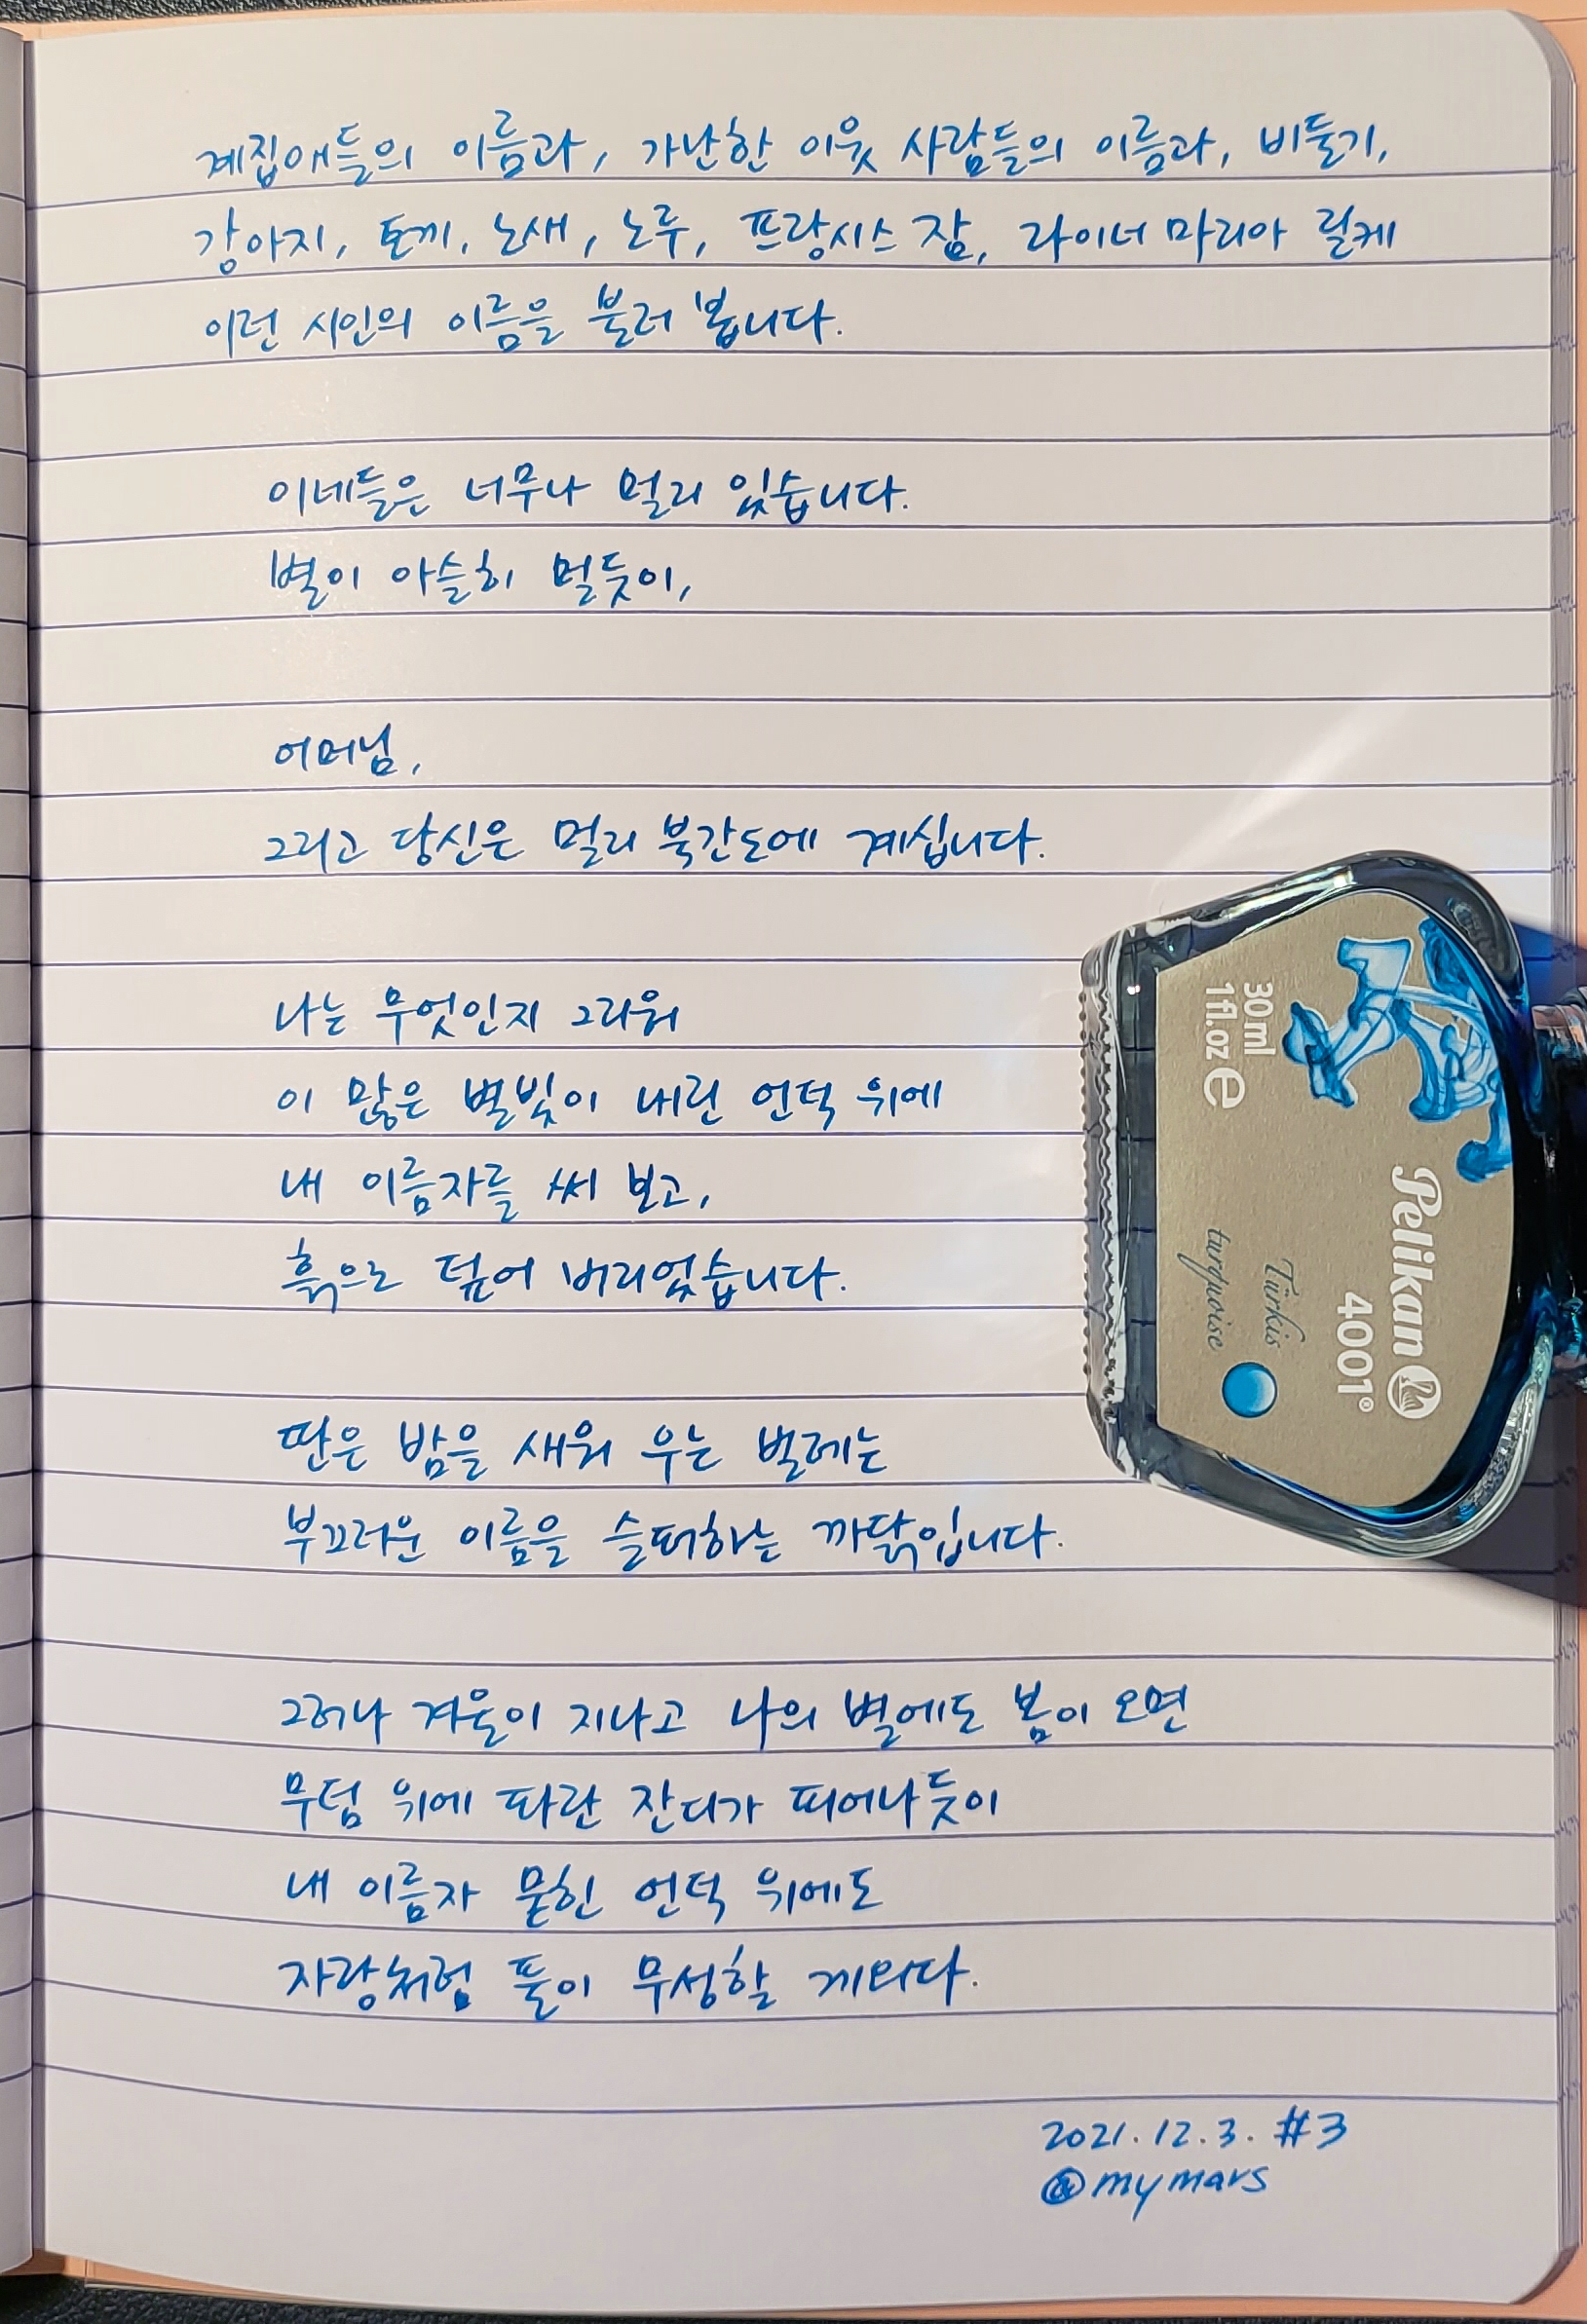 계집애들의 이름과, 가난한 이웃 사람들의 이름과, 비둘기,
강아지, 토끼, 노새, 노루, 프랑시스 잠, 라이너 마리아 릴케
이런 시인의 이름을 불러 봅니다.
이네들은 너무나 멀리 있습니다.
별이 아슬히 멀듯이,
어머님,
그리고 당신은 멀리 북간도에 계십니다.
나는 무엇인지 그리워
이 많은 별빛이 내린 언덕 위에
내 이름자를 써 보고,
흙으로 덮어 버리었습니다.
딴은 밤을 새워 우는 벌레는
부끄러운 이름을 슬퍼하는 까닭입니다.
그러나 겨울이 지나고 나의 별에도 봄이 오면
무덤 위에 파란 잔디가 피어나듯이
내 이름자 묻힌 언덕 위에도
자랑처럼 풀이 무성할 게외다.
2021.12.3. #3
@mymars
Pelikan
4001®
Türkis
turquoise
30 ml
1 fl.oz e